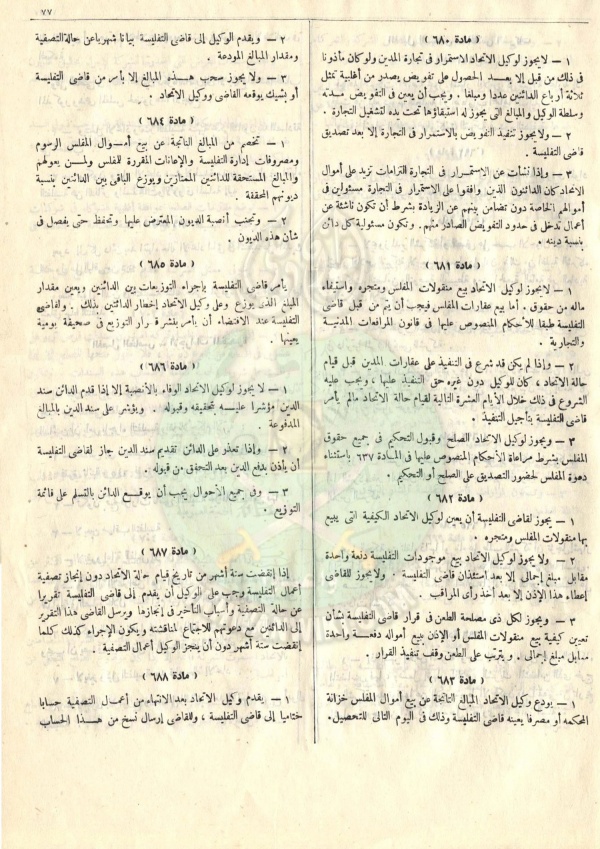 ٧٧
( مادة ٦٨٠ )
١ — لا يجوز لوكيل الاتحاد الاستمرار فى تجارة المدين ولو كان مأذونا
فى ذلك من قبل إلا بعد الحصول على تفويض يصدر من أغلبية تمثل
ثلاثة أرباع الدائنين عددا ومبلغا . ويجب أن يعين فى التفويض مدته
وسلطة الوكيل والمبالغ التى يجوز له استبقاؤها تحت يده لتشغيل التجارة .
٢ — ولا يجوز تنفيذ التفويض بالاستمرار فى التجارة إلا بعد تصديق
قاضى التفليسة .
٣ — وإذا نشأت عن الاستمرار فى التجارة التزامات تزيد على أموال
الاتحاد كان الدائنون الذين وافقوا على الاستمرار فى التجارة مسئولين فى
أموالهم الخاصة دون تضامن بينهم عن الزيادة بشرط أن تكون ناشئة عن
أعمال تدخل فى حدود التفويض الصادر منهم . وتكون مسئولية كل دائن
بنسبة دينه .
( مادة ٦٨١ )
١ — لوكيل الاتحاد بيع منقولات المفلس ومتجره واستيفاء
ماله من حقوق . أما بيع عقارات المفلس فيجب أن يتم من قبل قاضى
التفليسة طبقا للأحكام المنصوص عليها فى قانون المرافعات المدنية
والتجارية .
٢ — وإذا لم يكن قد شرع فى التنفيذ على عقارات المدين قبل قيام
حالة الاتحاد ، كان للوكيل دون غيره حق التنفيذ عليها ، ويجب عليه
الشروع فى ذلك خلال الأيام العشرة التالية لقيام حالة الاتحاد مالم يأمر
قاضى التفليسة بتأجيل التنفيذ .
٣ — ويجوز لوكيل الاتحاد الصلح وقبول التحكيم فى جميع حقوق
المفلس بشرط مراعاة الأحكام المنصوص عليها فى المادة ٦٣٧ باستثناء
دعوة المفلس لحضور التصديق على الصلح أو التحكيم .
( مادة ٦٨٢ )
١ — يجوز لقاضى التفليسة أن يعين لوكيل الاتحاد الكيفية التى يبيع
بها منقولات المفلس ومتجره .
٢ — ولا يجوز لوكيل الاتحاد بيع موجودات التفليسة دفعة واحدة
مقابل مبلغ إجمالى إلا بعد استئذان قاضى التفليسة . ولا يجوز للقاضى
إعطاء هذا الإذن إلا بعد أخذ رأى المراقب .
٣ — ويجوز لكل ذى مصلحة الطعن فى قرار قاضى التفليسة بشأن
تعيين كيفية بيع منقولات المفلس أو الإذن ببيع أمواله دفعة واحدة
مقابل مبلغ إجمالى . ويترتب على الطعن وقف تنفيذ القرار .
( مادة ٦٨٣ )
١ — يودع وكيل الاتحاد المبالغ الناتجة عن بيع أموال المفلس خزانة
المحكمه أو مصرفا يعينه قاضى التفليسة وذلك فى اليوم التالى للتحصيل .
٢ — ويقدم الوكيل إلى قاضى التفليسة بيانا شهريا عن حالة التصفية
ومقدار المبالغ المودعة .
٣ — ولا يجوز سحب هذه المبالغ إلا بأمر من قاضى التفليسة
أو بشيك يوقعه القاضى ووكيل الاتحاد .
( مادة ٦٨٤ )
١ — تخصم من المبالغ الناتجة عن بيع أموال المفلس الرسوم
ومصروفات إدارة التفليسة والإعانات المقررة للمفلس ولمن يعولهم
والمبالغ المستحقة للدائنين الممتازين ويوزع الباقى بين الدائنين بنسبة
ديونهم المحققة .
٢ — وتجنب أنصبة الديون المعترض عليها وتحفظ حتى يفصل فى
شأن هذه الديون .
( مادة ٦٨٥ )
يأمر قاضى التفليسة بإجراء التوزيعات بين الدائنين ويعين مقدار
المبلغ الذى يوزع وعلى وكيل الاتحاد إخطار الدائنين بذلك . ولقاضى
التفليسة عند الاقتضاء أن يأمر بنشر قرار التوزيع فى صحيفة يومية
يعينها .
( مادة ٦٨٦ )
١ — لا يجوز لوكيل الاتحاد الوفاء بالأنصبة إلا إذا قدم الدائن سند
الدين مؤشرا عليه بتحقيقه وقبوله . ويؤشر على سند الدين بالمبالغ
المدفوعة .
٢ — وإذا تعذر على الدائن تقديم سند الدين جاز لقاضى التفليسة
أن يأذن بدفع الدين بعد التحقق من قبوله .
٣ — وفى جميع الأحوال يجب أن يوقع الدائن بالتسلم على قائمة
التوزيع .
( مادة ٦٨٧ )
إذا انقضت ستة أشهر من تاريخ قيام حالة الاتحاد دون إنجاز تصفية
أعمال التفليسة وجب على الوكيل أن يقدم إلى قاضى التفليسة تقريرا
عن حالة التصفية وأسباب التأخر فى إنجازها ويرسل القاضى هذا التقرير
إلى الدائنين مع دعوتهم للاجتماع لمناقشته ويكون الإجراء كذلك كلما
انقضت ستة أشهر دون أن ينجز الوكيل أعمال التصفية .
( مادة ٦٨٨ )
١ — يقدم وكيل الاتحاد بعد الانتهاء من أعمال التصفية حسابا
ختاميا إلى قاضى التفليسة ، وللقاضى إرسال نسخ من هذا الحساب